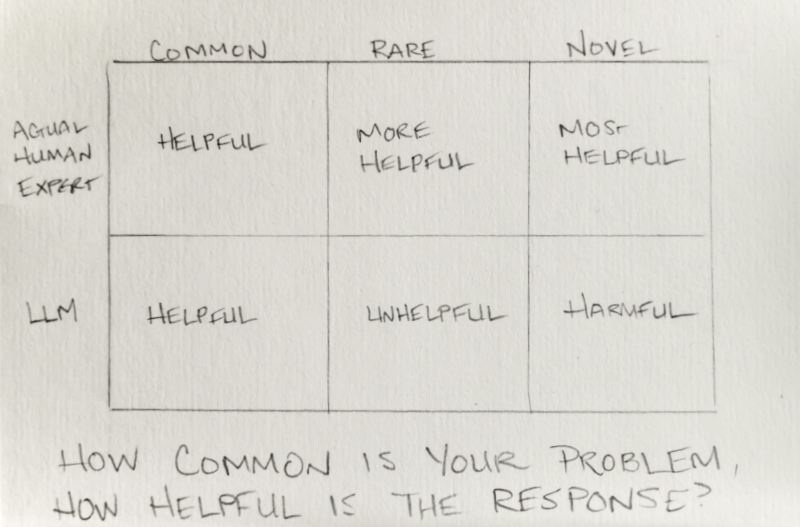 COMMON RARE NOVEL
ACTUAL
HUMAN
EXPERT
HELPFUL
MORE
HELPFUL
MOST
HELPFUL
LLM
HELPFUL
UNHELPFUL
HARMFUL
HOW COMMON IS YOUR PROBLEM,
HOW HELPFUL IS THE RESPONSE?